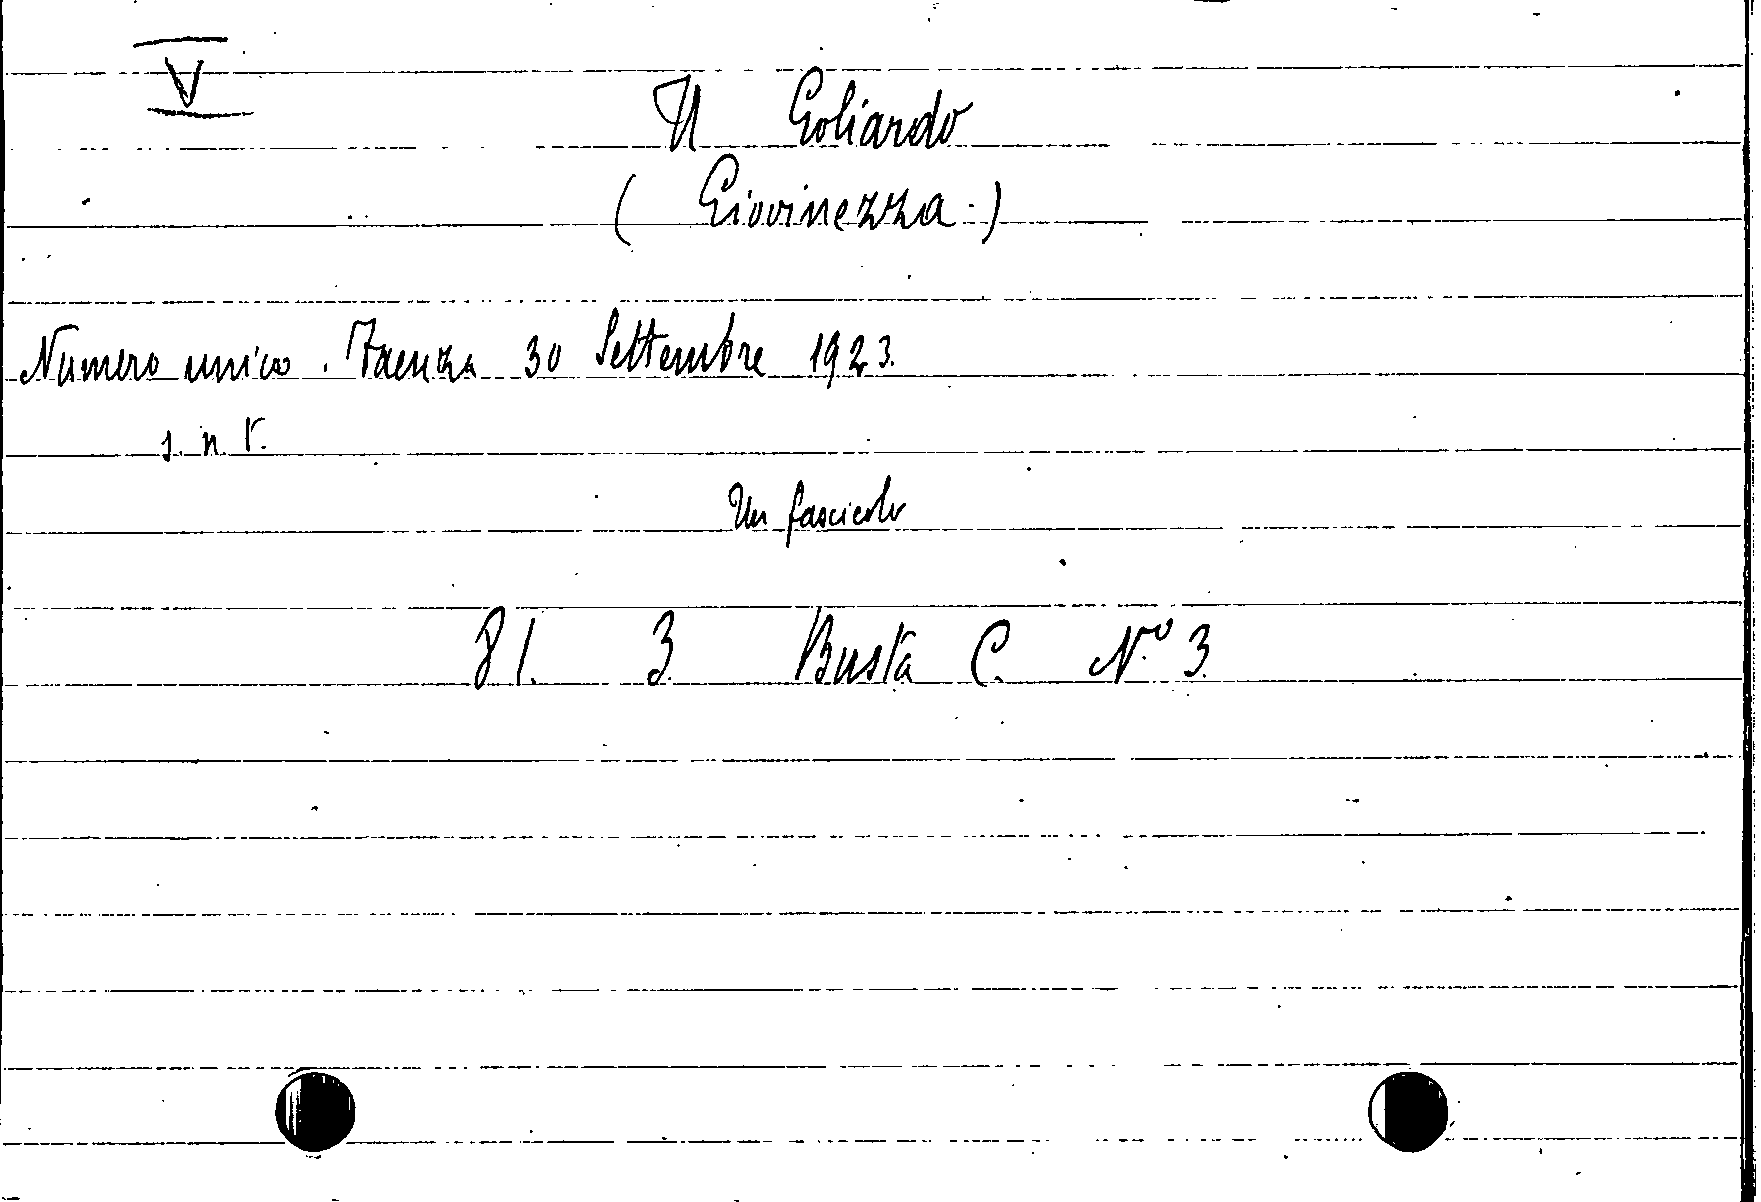 V
Il Goliardo
( Giovinezza )
Numero unico. Faenza 30 Settembre 1923.
s. n. t.
Un fascicolo
81. 3 Busta C. N.o 3.